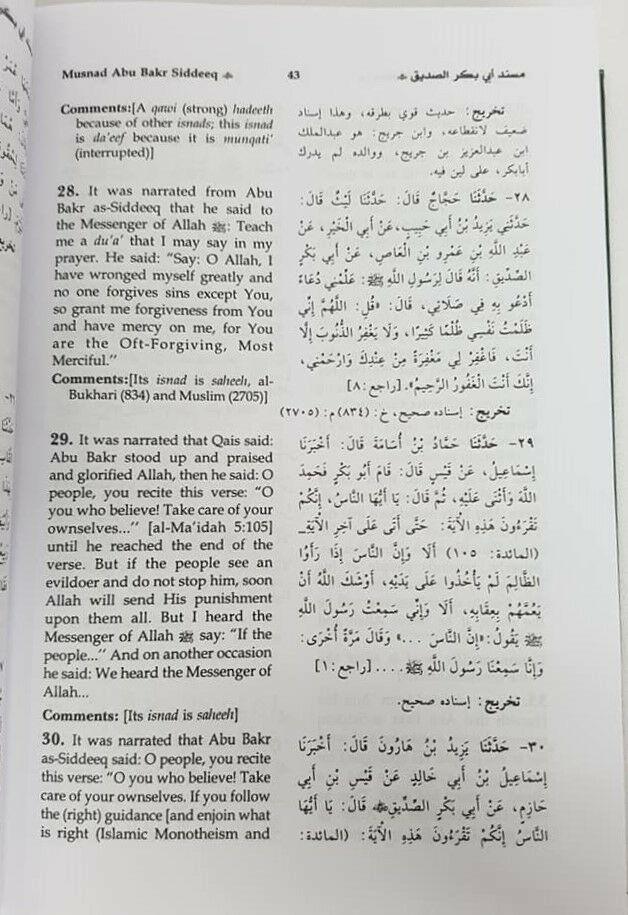 Musnad Abu Bakr Siddeeq
43
مسند أبي بكر الصديق
Comments:[A qawi (strong) hadeeth
because of other isnads; this isnad
is da'eef because it is munqati'
(interrupted)]
28. It was narrated from Abu
Bakr as-Siddeeq that he said to
the Messenger of Allah ﷺ: Teach
me a du'a' that I may say in my
prayer. He said: “Say: O Allah, I
have wronged myself greatly and
no one forgives sins except You,
so grant me forgiveness from You
and have mercy on me, for You
are the Oft-Forgiving, Most
Merciful.”
Comments:[Its isnad is saheeh, al-
Bukhari (834) and Muslim (2705)]
29. It was narrated that Qais said:
Abu Bakr stood up and praised
and glorified Allah, then he said: O
people, you recite this verse: “O
you who believe! Take care of your
ownselves...” [al-Ma'idah 5:105]
until he reached the end of the
verse. But if the people see an
evildoer and do not stop him, soon
Allah will send His punishment
upon them all. But I heard the
Messenger of Allah ﷺ say: “If the
people...” And on another occasion
he said: We heard the Messenger of
Allah...
Comments: [Its isnad is saheeh]
30. It was narrated that Abu Bakr
as-Siddeeq said: O people, you recite
this verse: “O you who believe! Take
care of your ownselves. If you follow
the (right) guidance [and enjoin what
is right (Islamic Monotheism and
تخريج: حديث قوي بطرقه، وهذا إسناد
ضعيف لانقطاعه، وابن جريج: هو عبدالملك
ابن عبدالعزيز بن جريج، ووالده لم يدرك
أبابكر، على لين فيه.
٢٨- حَدَّثَنَا حَجَّاجٌ قَالَ: حَدَّثَنَا لَيْثٌ قَالَ:
حَدَّثَنِي يَزِيدُ بْنُ أَبِي حَبِيبٍ، عَنْ أَبِي الْخَيْرِ، عَنْ
عَبْدِ اللَّهِ بْنِ عَمْرِو بْنِ الْعَاصِ، عَنْ أَبِي بَكْرٍ
الصِّدِّيقِ: أَنَّهُ قَالَ لِرَسُولِ اللَّهِ ﷺ: عَلِّمْنِي دُعَاءً
أَدْعُو بِهِ فِي صَلَاتِي، قَالَ: «قُلِ: اللَّهُمَّ إِنِّي
ظَلَمْتُ نَفْسِي ظُلْمًا كَثِيرًا، وَلَا يَغْفِرُ الذُّنُوبَ إِلَّا
أَنْتَ، فَاغْفِرْ لِي مَغْفِرَةً مِنْ عِنْدِكَ وَارْحَمْنِي،
إِنَّكَ أَنْتَ الْغَفُورُ الرَّحِيمُ». [راجع: ٨]
تخريج: إسناده صحيح، خ: (٨٣٤) م: (٢٧٠٥)
٢٩- حَدَّثَنَا حَمَّادُ بْنُ أُسَامَةَ قَالَ: أَخْبَرَنَا
إِسْمَاعِيلُ، عَنْ قَيْسٍ قَالَ: قَامَ أَبُو بَكْرٍ فَحَمِدَ
اللَّهَ وَأَثْنَى عَلَيْهِ، ثُمَّ قَالَ: يَا أَيُّهَا النَّاسُ، إِنَّكُمْ
تَقْرَءُونَ هَذِهِ الْآيَةَ: حَتَّى أَتَى عَلَى آخِرِ الْآيَةِ۔
(المائدة: ١٠٥) أَلَا وَإِنَّ النَّاسَ إِذَا رَأَوُا
الظَّالِمَ لَمْ يَأْخُذُوا عَلَى يَدَيْهِ، أَوْشَكَ اللَّهُ أَنْ
يَعُمَّهُمْ بِعِقَابِهِ، أَلَا وَإِنِّي سَمِعْتُ رَسُولَ اللَّهِ
ﷺ يَقُولُ: «إِنَّ النَّاسَ ...» وَقَالَ مَرَّةً أُخْرَى:
وَإِنَّا سَمِعْنَا رَسُولَ اللَّهِ ﷺ.... [راجع: ١]
تخريج: إسناده صحيح.
٣٠- حَدَّثَنَا يَزِيدُ بْنُ هَارُونَ قَالَ: أَخْبَرَنَا
إِسْمَاعِيلُ بْنُ أَبِي خَالِدٍ عَنْ قَيْسِ بْنِ أَبِي
حَازِمٍ، عَنْ أَبِي بَكْرٍ الصِّدِّيقِ قَالَ: يَا أَيُّهَا
النَّاسُ إِنَّكُمْ تَقْرَءُونَ هَذِهِ الْآيَةَ: (المائدة: